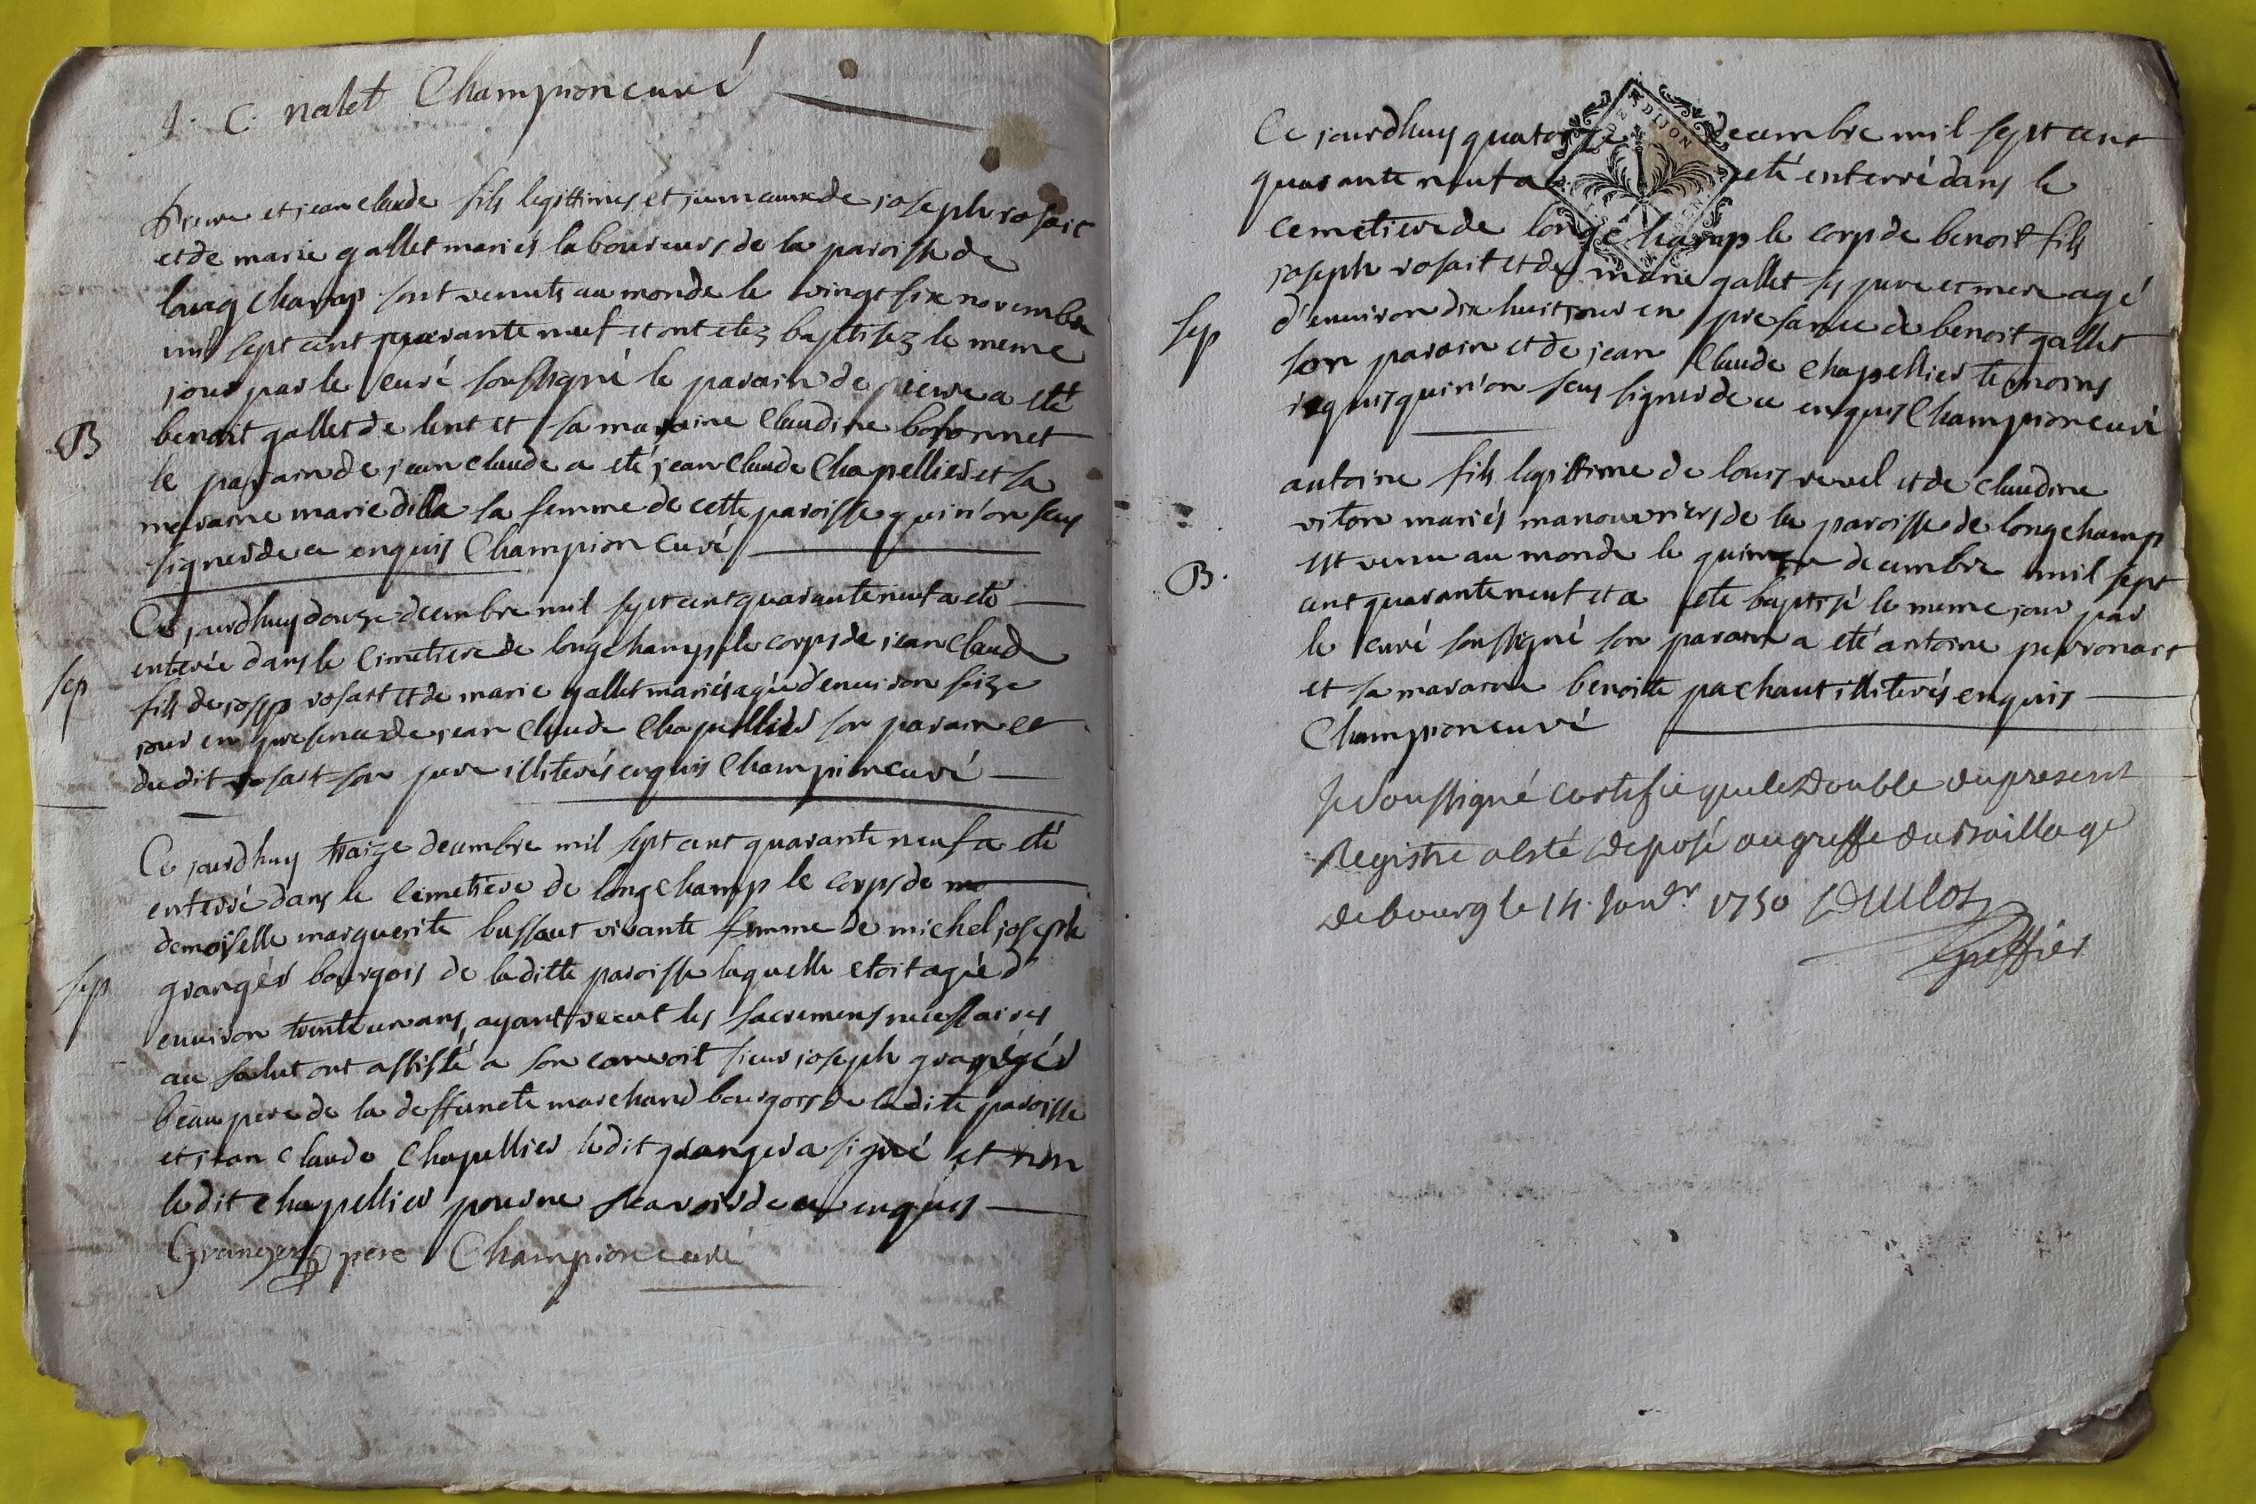 J. C. nalet Champion curé
pierre et jean claude fils legittimes et jumeaux de joseph rosait
et de marie gallet mariés laboureurs de la paroisse de
long champ sont venuts au monde le vingt six novembre
mil sept cent quarante neuf et ont etez baptisez le meme
jour par le curé soussigné le parain de pierre a eté
B
benoit gallet de lent et sa maraine Claudine bononnet
le parain de jean claude a eté jean claude Chapellier et sa
maraine marie dilla sa femme de cette paroisse qui n'on seus
signer de ce enquis Champion curé
Ce jourdhuy douze decembre mil sept cent quarante neuf a eté
enterée dans le cimetiere de longchamp le corps de jean Claude
sep
fils de josep rosait et de marie gallet mariés agée d'environ seize
jour en presence de jean Claude Chapellier son parain et
du dit rosait son pere illiterés enquis Champion curé
Ce jourdhuy traize decembre mil sept cent quarante neuf a eté
enterré dans le cemetiere de longchamp le corps de ma
demoiselle marguerite bussaut vivante femme de michel joseph
sep
granger bourgois de laditte paroisse laquelle etoit agée d
environ trente un ans, ayant recut les sacremens necessaires
au salut ont assisté a son convoit sieur joseph granger
beau pere de la deffuncte marchand bourgois de ladite paroisse
et jean Claude Chapellier ledit granger a signé et non
ledit chapellier pour ne scavoir de ce enquis
Granger pere Champion curé
Ce jourdhuy quatorze decembre mil sept cent
DE DIJON
quarante neuf a eté enterré dans le
cemetiere de longchamp le corps de benoit fils
joseph rosait et de marie gallet ses pere et mere agé
sep
d'environ dix huit jour en presance de benoit gallet
son parain et de jean Claude Chapellier temoins
requis qui n'on seus signer de ce enquis Champion curé
antoine fils legittime de louis revel et de claudine
viton mariés manouvriers de la paroisse de longchamp
B.
est venu au monde le quinze decembre mil sept
cent quarante neuf et a eté baptisé le meme jour par
le curé soussigné son parain a eté antoine perronait
et sa maraine benoite pachaut illiterés enquis
Champion curé
Je soussigné certifie que le Double du present
Registre a esté deposé au greffe du Bailliage
de bourg le 14. Janvr. 1750
Greffier